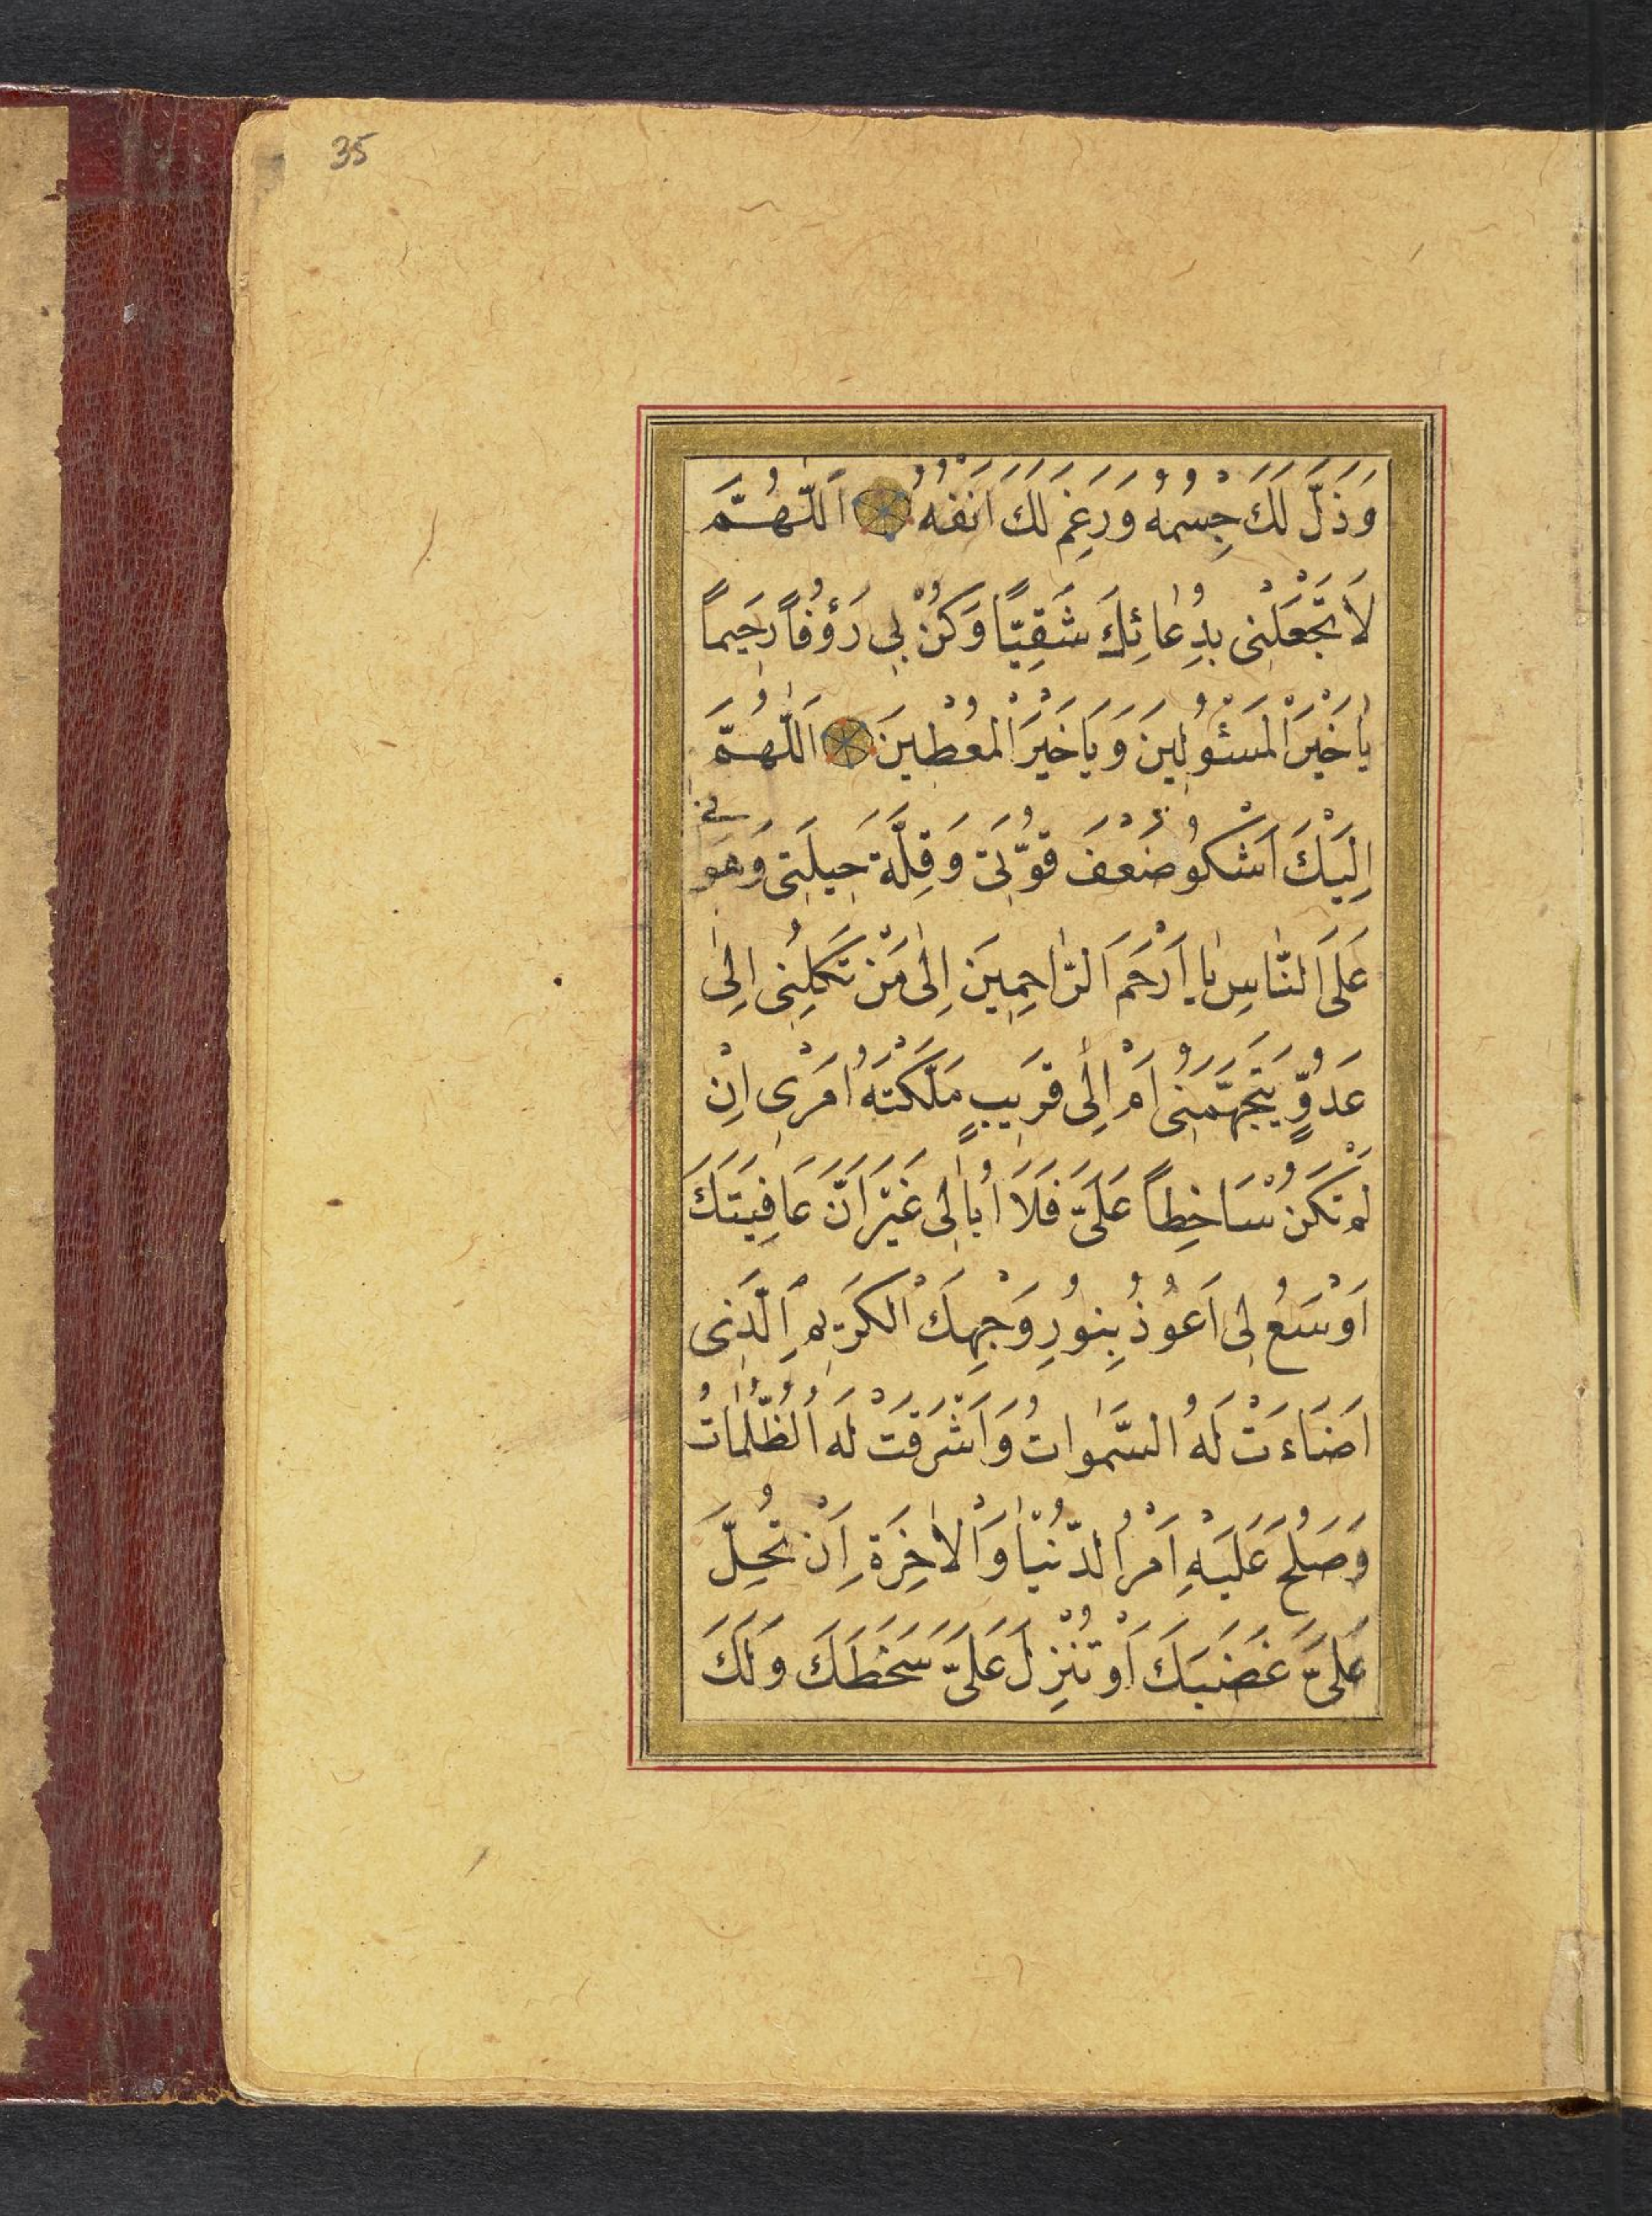 35
وَذَلَّ لَكَ جِسْمُهُ وَرَغِمَ لَكَ اَنْفُهُ اَللّٰهُمَّ
لَا تَجْعَلْنِى بِدُعٰائِكَ شَقِيًّا وَكُنْ بِى رَؤُفاً رَحِيماً
يٰا خَيْرَ الْمَسْئُولِينَ وَيَا خَيْرَ الْمُعْطِينَ اَللّٰهُمَّ
اِلَيْكَ اَشْكُو ضَعْفَ قُوَّتِى وَقِلَّةَ حِيلَتِى وَهَو
نِى
عَلَى النّٰاسِ يٰا اَرْحَمَ الرّٰاحِمِينَ اِلٰى مَنْ تَكِلُنِى اِلٰى
عَدُوٍّ يَتَجَهَّمُنِى اَمْ اِلٰى قَرِيبٍ مَلَّكْتَهُ اَمْرِى اِنْ
لَمْ تَكُنْ سَاخِطاً عَلَىَّ فَلَا اُبٰالِى غَيْرَ اَنَّ عَافِيَتَكَ
اَوْسَعُ لِى اَعُوذُ بِنُورِ وَجْهِكَ الْكَرِيمِ اَلَّذِى
اَضَاءَتْ لَهُ السَّمٰوَاتُ وَاَشْرَقَتْ لَهُ الظُّلُمٰاتُ
وَصَلُحَ عَلَيْهِ اَمْرُ الدُّنْيٰا وَالْاٰخِرَةِ اَنْ تُحِلَّ
عَلَىَّ غَضَبَكَ اَوْ تُنْزِلَ عَلَىَّ سَخَطَكَ وَلَكَ